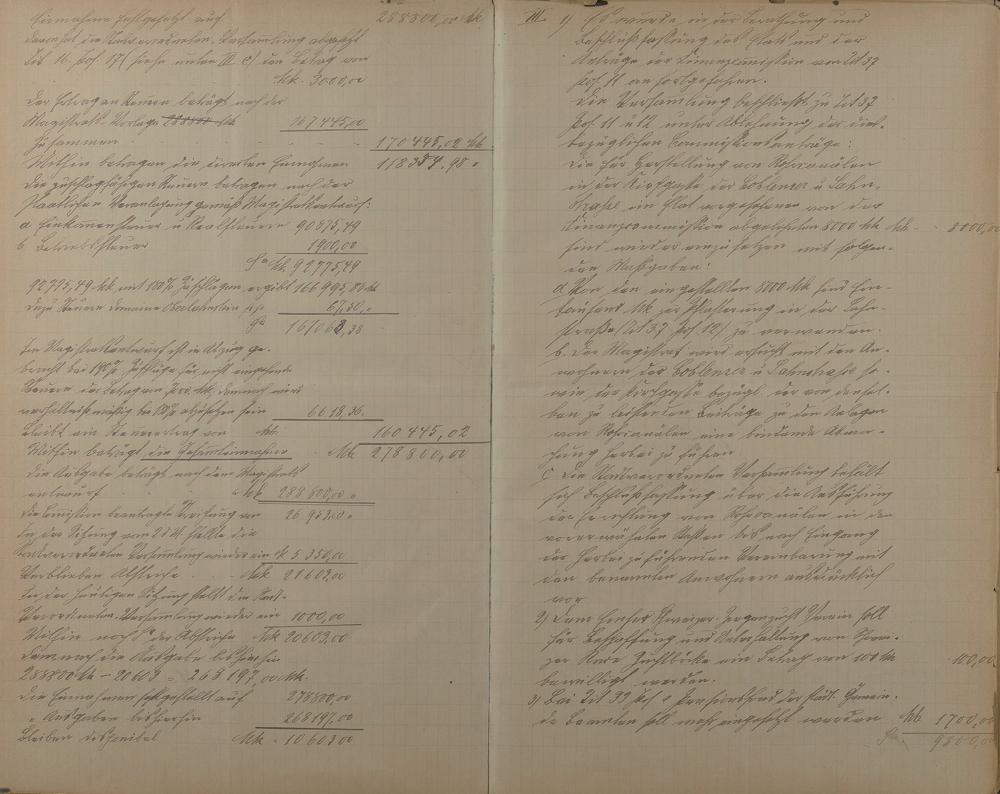 Einnahme festgesetzt auf 288800,00 Mk
davon hat die Stadtverordneten-Versammlung abgesetzt
Tit 16. Pos. 17 (siehe unter III c) den Betrag von
Mk. 3000,00
Der Ertrag an Steuern beträgt nach der
Magistrats-Vorlage 167445,00
zusammen 170445,02 Mk
Mithin betragen die Einnahmen 118354,98 "
Die zuschlagsfähigen Steuern betragen nach der
staatlichen Veranlagung gemäß Magistratsentwurf:
a Einkommensteuer u Realsteuern 90875,49
b Betriebssteuer 1900,00
Sa Mk. 92775,49
92775,49 Mk mit 180% Zuschlägen ergibt 166995,88 Mk
dazu Steuern Domaine Oberlahnstein p.p. 67,50 "
Sa 167063,38
Im Magistratsentwurf ist in Abzug ge-
bracht bei 190% Zuschläge für
Steuern der Betrag von Mk. demnach wird
verhältnismäßig bei 180% abzusetzen sein 6618,36
bleibt ein Steuerertrag von Mk. 160445,02
Mithin beträgt die Gesammteinnahme Mk 278800,00
Die Ausgabe beträgt nach dem Magistrats-
entwurf Mk 288800,00 "
Die Comission beantragte Streichung von 26953,00 "
In der Sitzung vom 21/4 stellte die
Stadtverordneten Versammlung wieder ein Mk 5350,00
Verblieben Abstriche Mk 21603,00
In der heutigen Sitzung stellt die Stadt-
verordneten-Versammlung wieder ein 1000,00
Mithin noch der Abstriche Mk 20603,00
Demnach die Ausgabe bis hierhin
288800 Mk - 20603 = 268197,00 Mk.
Die Einnahmen festgestellt auf 278800,00
" Ausgaben bis hierhin 268197,00
bleiben disponibel Mk 10603,00
III. 1) Es wurde in der Berathung und
Beschlußfassung des Etats und der
Anträge der Finanzcomission von Tit 37
Pos. 11 an fortgefahren.
Die Versammlung beschließt zu Tit 37
Pos. 11 u 12 unter Ablehnung der dies-
bezüglichen Commissionsanträge:
Die für Herstellung von Rohrcanälen
in der Kirchgasse der Coblenzer u Lahn-
straße im Etat vorgesehenen von der
Finanzcommission abgelehnten 8000 Mk Mk. 8000,00
sind wieder einzusetzen mit folgen-
den Maßgaben:
a. Von den eingestellten 8000 Mk sind Ein-
tausend Mk zur Pflasterung in der Lahn-
straße (Tit 37 Pos. 12) zu verwenden.
b. Der Magistrat wird ersucht mit den An-
wohnern der Coblenzer u Lahnstraße so-
wie der Kirchgasse bezügl. der von densel-
ben zu leistenden Beiträge zu den Anlagen
von Rohrcanälen eine bindende Abma-
chung herbei zu führen
c Die Stadtverordneten Versammlung behält
sich Beschlußfassung über die Ausführung
der Herstellung von Rohrcanälen in den
vorerwähnten Straßen bis nach Eingang
der herbei zu führenden Vereinbarung mit
den benannten Anwohnern ausdrücklich
vor
2) Dem Emser Ziegenzucht Verein soll
für Beschaffung und Unterhaltung von Schwei-
zer Rasse Zuchtböcke ein Betrag von 100 Mk 100,00
bewilligt werden.
3) Bei Tit 39 Pos Pensionsfond der städt. Gemein-
de Beamten soll mehr eingesetzt werden Mk 1700,00
Sa. 9800,00